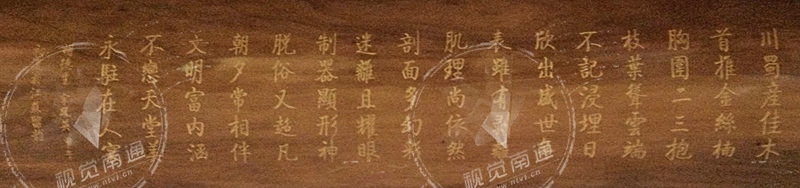 川蜀产佳木
首推金絲楠
胸圍二三抱
枝葉聳雲端
不記浸埋日
欣出盛世
表雖有
肌理尚依然
剖面多幻
迷離且耀眼
制器顯形神
脱俗又超凡
朝夕常相伴
文明富内涵
不戀天堂美
永駐在人寰
视觉南通
www.ntvi.cn
视觉南通
www.ntvi.cn